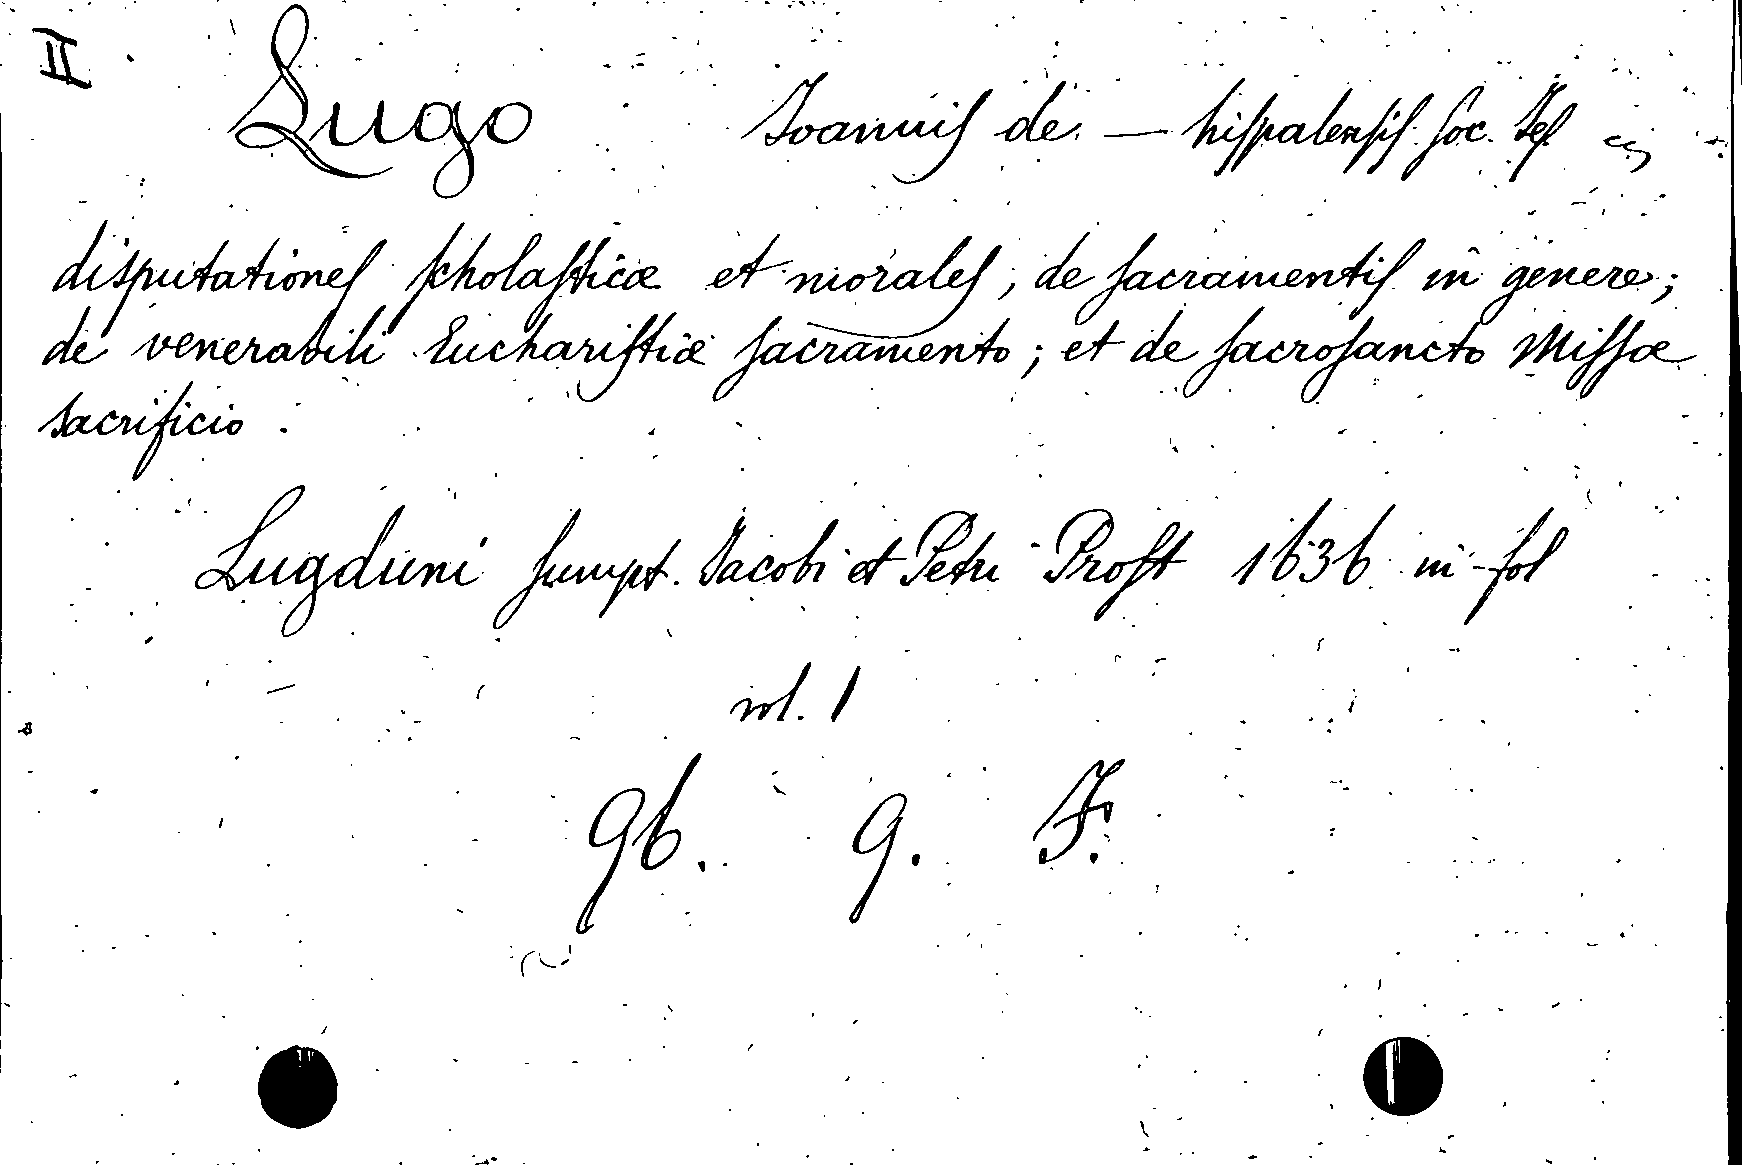 II Lugo Joannis de — hispalensis Soc. Jes
disputationes scholasticæ et morales, de sacramentis in genere;
de venerabili Eucharistiæ sacramento; et de sacrosancto Missæ
sacrificio.
Lugduni sumpt. Jacobi et Petri Prost 1636 in-fol
vol. 1
96. 9. F.